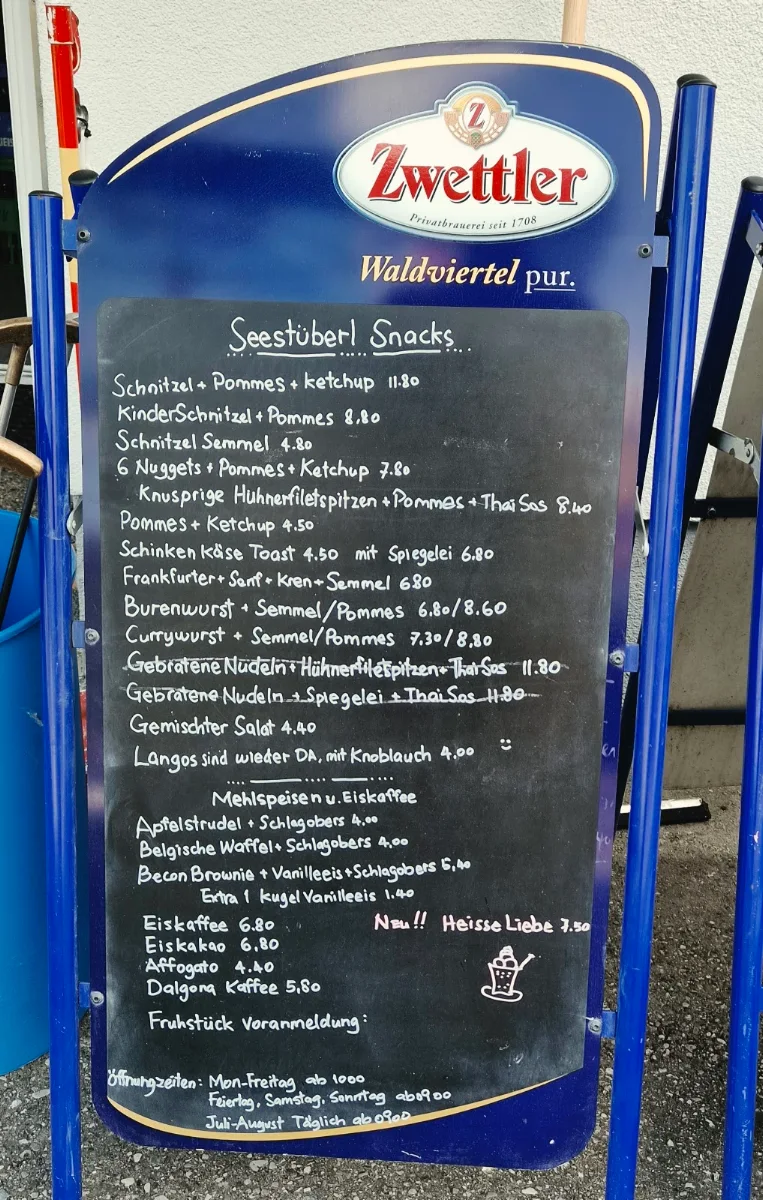 Z
Zwettler
Privatbrauerei seit 1708
Waldviertel pur.
Seestüberl Snacks
Schnitzel + Pommes + Ketchup 11.80
KinderSchnitzel + Pommes 8.80
Schnitzel Semmel 4.80
6 Nuggets + Pommes + Ketchup 7.80
Knusprige Hühnerfiletspitzen + Pommes + Thai Sos 8.40
Pommes + Ketchup 4.50
Schinken Käse Toast 4.50 mit Spiegelei 6.80
Frankfurter + Senf + Kren + Semmel 6.80
Burenwurst + Semmel/Pommes 6.80/8.60
Currywurst + Semmel/Pommes 7.30/8.80
Gebratene Nudeln + Hühnerfiletspitzen + Thai Sos 11.80
Gebratene Nudeln + Spiegelei + Thai Sos 11.80
Gemischter Salat 4.40
Langos sind wieder DA, mit Knoblauch 4.00
Mehlspeisen u. Eiskaffee
Apfelstrudel + Schlagobers 4.00
Belgische Waffel + Schlagobers 4.00
Becon Brownie + Vanilleeis + Schlagobers 6,40
Extra 1 Kugel Vanilleeis 1.40
Eiskaffee 6.80
Neu!! Heisse Liebe 7.50
Eiskakao 6.80
Affogato 4.40
Dalgona Kaffee 5,80
Fruhstück Voranmeldung:
Öffnungzeiten: Mon-Freitag ab 1000
Feiertag, Samstag, Sonntag ab 0900
Juli-August Täglich ab 0900